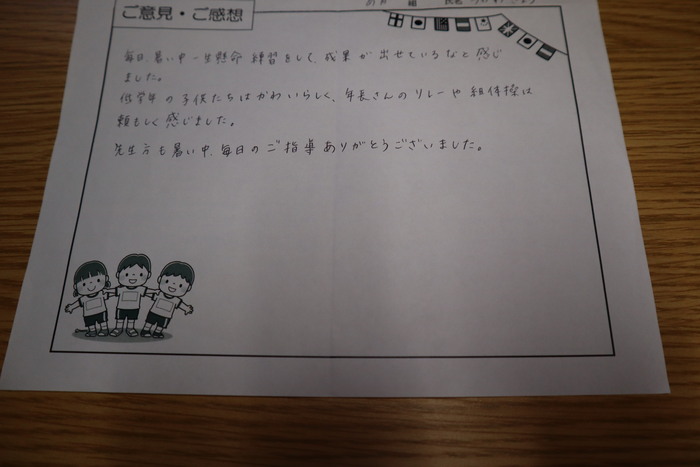 組
ご意見・ご感想
毎日、暑い中一生懸命 練習をして、成果が出せているなと感じ
ました。
低学年の子供たちはかわいらしく、年長さんのリレーや組体操は
頼もしく感じました。
先生方も暑い中、毎日のご指導ありがとうございました。